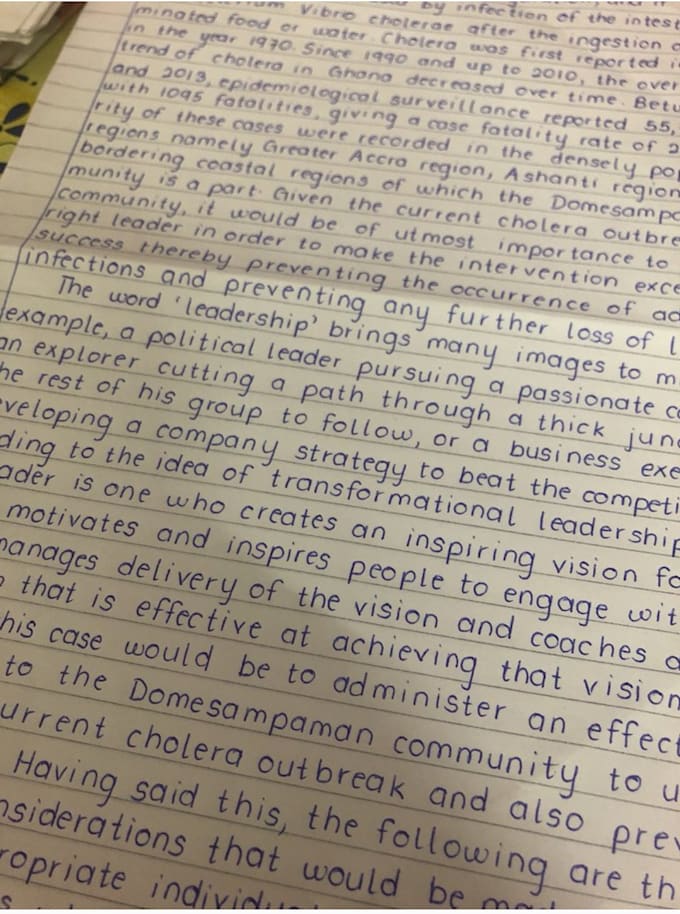 Vibrio cholerae by infection of the intest
minated food or water. Cholera was first reported i
in the year 1970. Since 1990 and up to 2010, the over
trend of cholera in Ghana decreased over time. Betw
and 2013, epidemiological surveillance reported 55,
with 1095 fatalities, giving a case fatality rate of 2
rity of these cases were recorded in the densely pop
regions namely Greater Accra region, Ashanti region
bordering coastal regions of which the Domesampa
munity is a part. Given the current cholera outbre
community, it would be of utmost importance to
right leader in order to make the intervention exce
success thereby preventing the occurrence of ad
infections and preventing any further loss of l
The word 'leadership' brings many images to m
example, a political leader pursuing a passionate c
an explorer cutting a path through a thick jung
he rest of his group to follow, or a business exe
veloping a company strategy to beat the competi
ding to the idea of transformational leadership
ader is one who creates an inspiring vision fo
motivates and inspires people to engage wit
manages delivery of the vision and coaches a
that is effective at achieving that vision
his case would be to administer an effect
to the Domesampaman community to u
urrent cholera outbreak and also prev
Having said this, the following are th
nsiderations that would be mad
ropriate individu